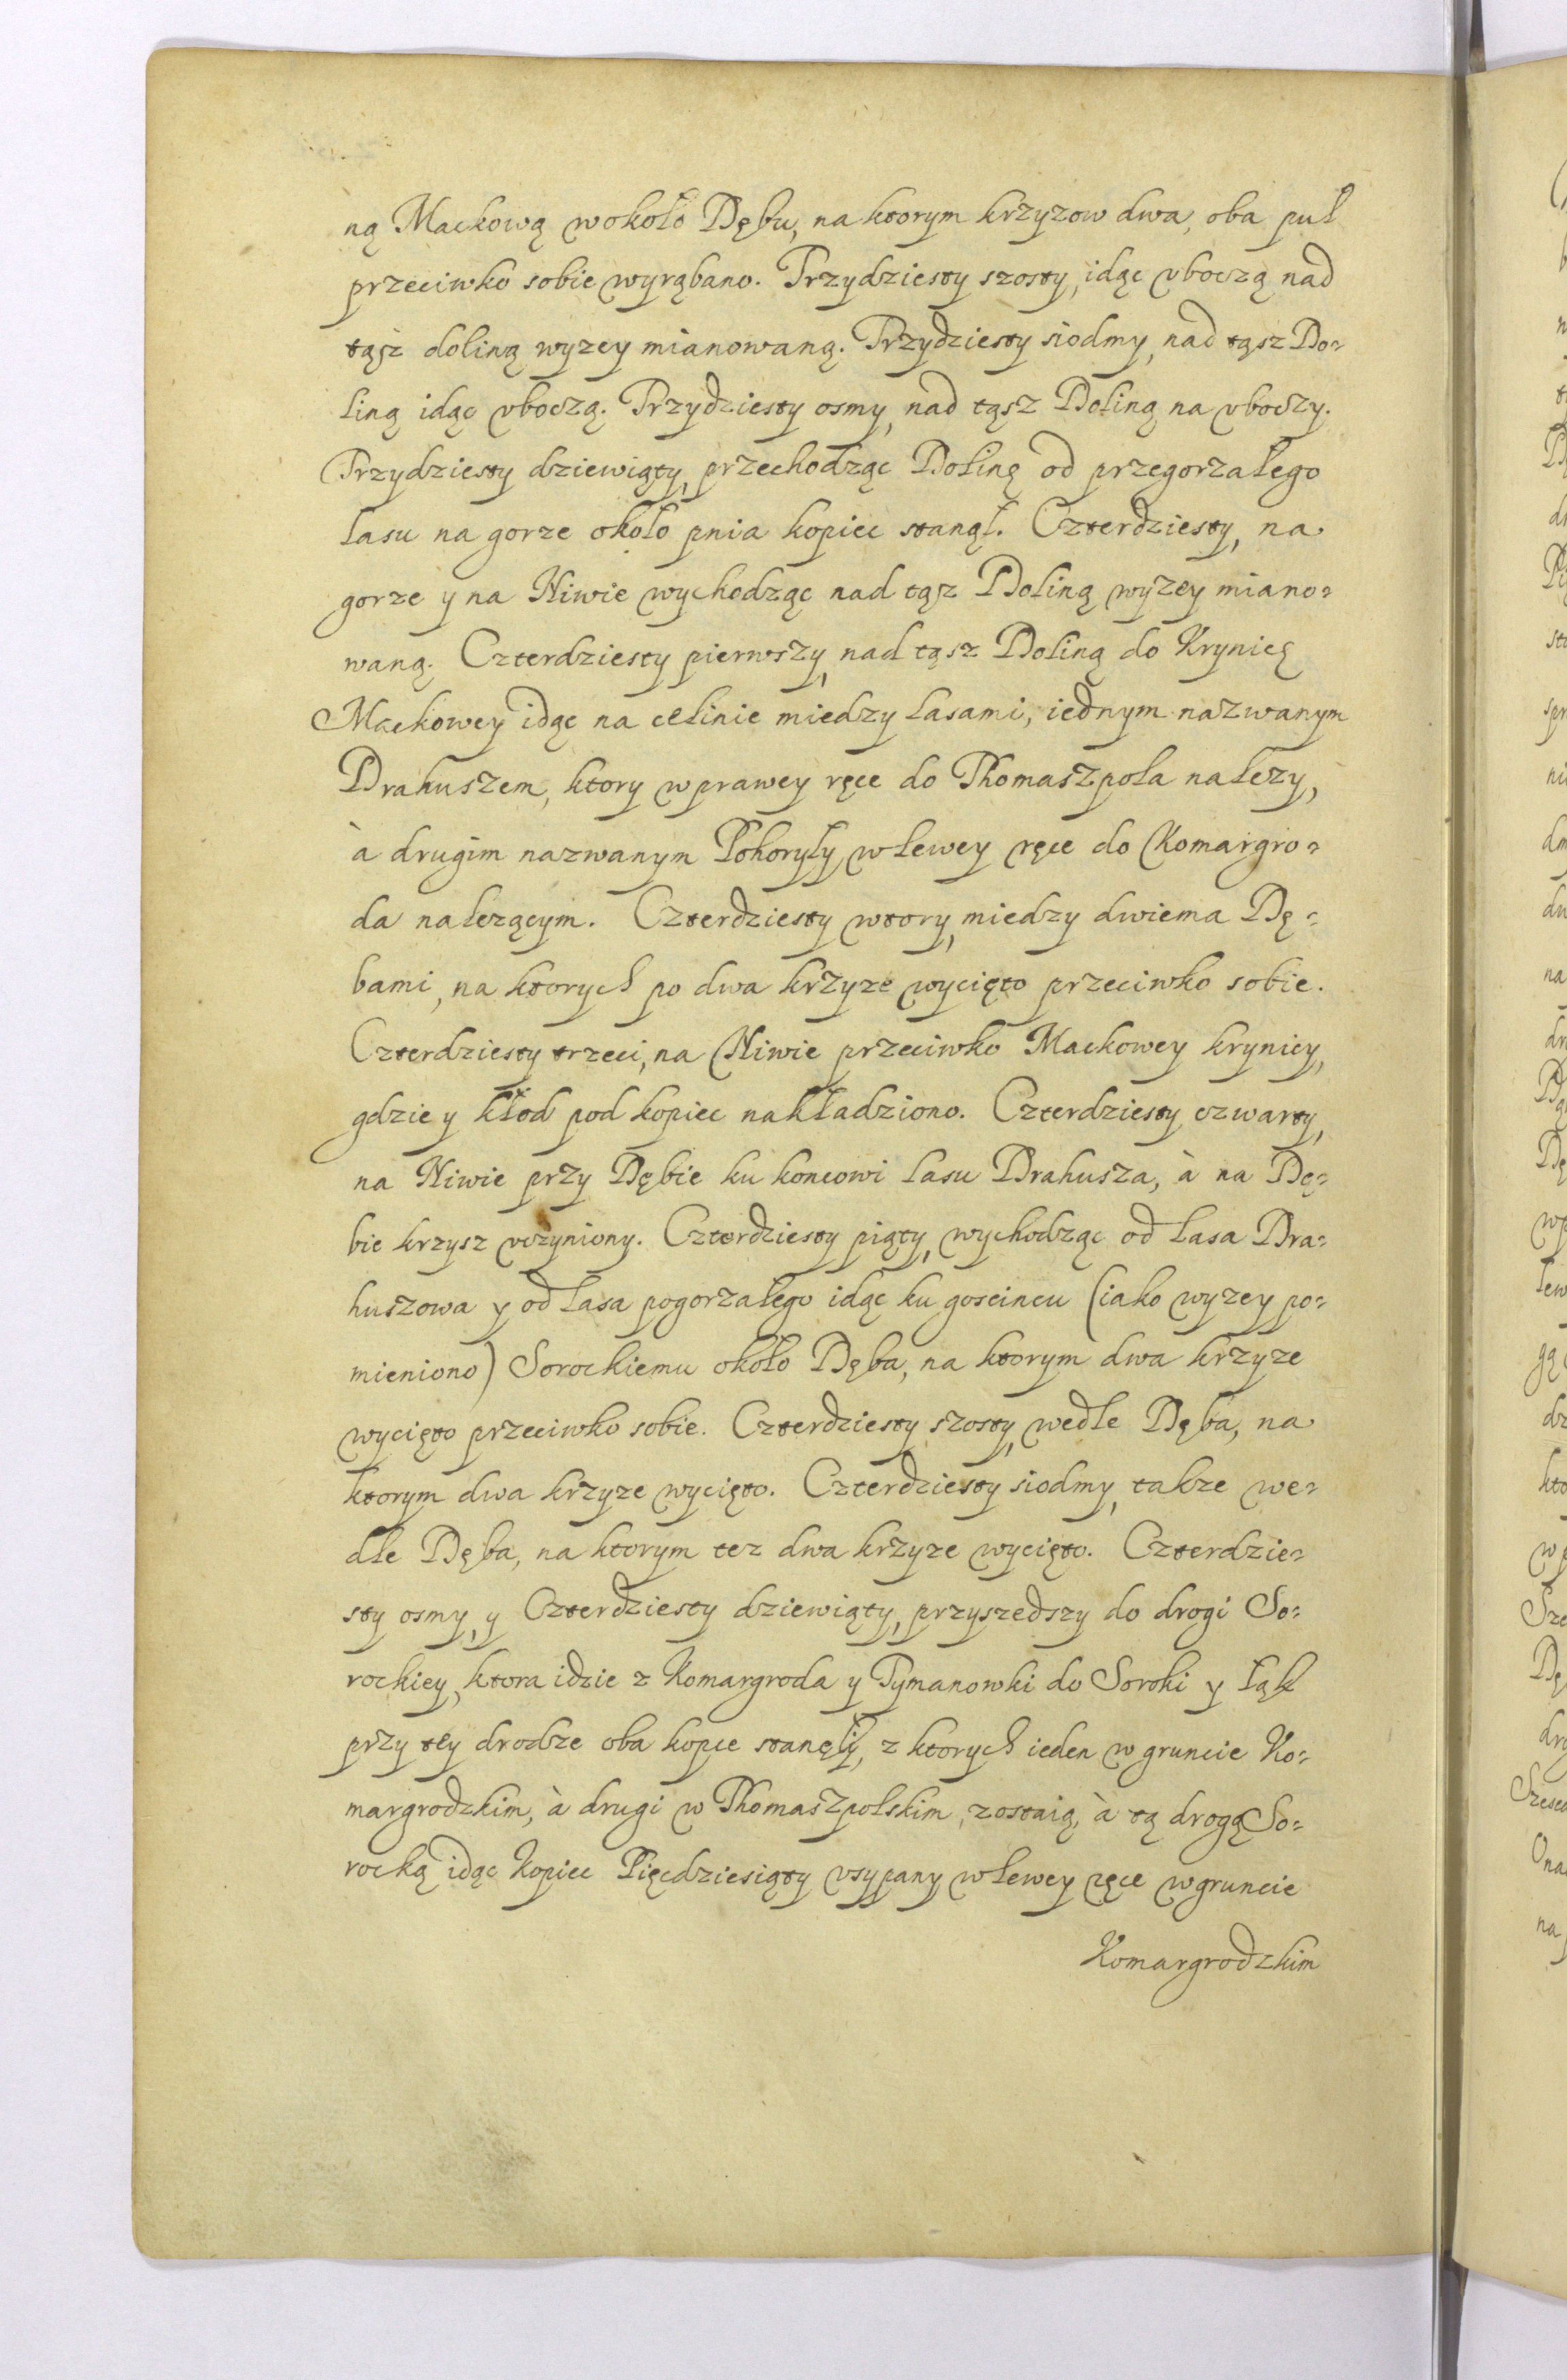 ną Mackową wokoło Dębu, na ktorym krzyzow dwa, oba puł
przeciwko sobie wyrąbano. Trzydziesty szosty, idąc vboczą nad
tąsz doliną wyzey mianowaną. Trzydziesty siodmy, nad tąsz Do-
liną idąc vboczą. Trzydziesty osmy, nad tąsz Doliną na vboczy.
Trzydziesty dziewiąty, przechodząc Dolinę od przegorzałego
lasu na gorze około pnia kopiec stanął. Czterdziesty, na
gorze y na Niwie wychodząc nad tąsz Doliną wyzey miano-
waną. Czterdziesty pierwszy, nad tąsz Doliną do Krynicę
Mackowey idąc na celinie miedzy lasami, iednym nazwanym
Drahuszem, ktory w prawey ręce do Thomaszpola nalezy,
à drugim nazwanym Pohoryły w lewey ręce do Komargro-
da nalezącym. Czterdziesty wtory, miedzy dwiema Dę-
bami, na ktorych po dwa krzyze wycięto przeciwko sobie.
Czterdziesty trzeci, na Niwie przeciwko Mackowey krynicy,
gdzie y kłod pod kopiec nakładziono. Czterdziesty czwarty,
na Niwie przy Dębie ku koncowi lasu Drahusza, à na Dę-
bie krzysz vczyniony. Czterdziesty piąty, wychodząc od lasa Dra-
huszowa y od lasa pogorzałego idąc ku goscincu (iako wyzey po-
mieniono) Sorockiemu około Dęba, na ktorym dwa krzyze
wycięto przeciwko sobie. Czterdziesty szosty, wedle Dęba, na
ktorym dwa krzyze wycięto. Czterdziesty siodmy, takze we-
dle Dęba, na ktorym tez dwa krzyze wycięto. Czterdzie-
sty osmy, y Czterdziesty dziewiąty, przyszedszy do drogi So-
rockiey, ktora idzie z Komargroda y Tymanowki do Soroki y tąk
przy tey drodze oba kopce stanęły, z ktorych ieden w gruncie Ko-
margrodzkim, à drugi w Thomaszpolskim, zostaią, à tą drogą So-
rocką idąc Kopiec Pięcdziesiąty vsypany w lewey ręce w gruncie
Komargrodzkim